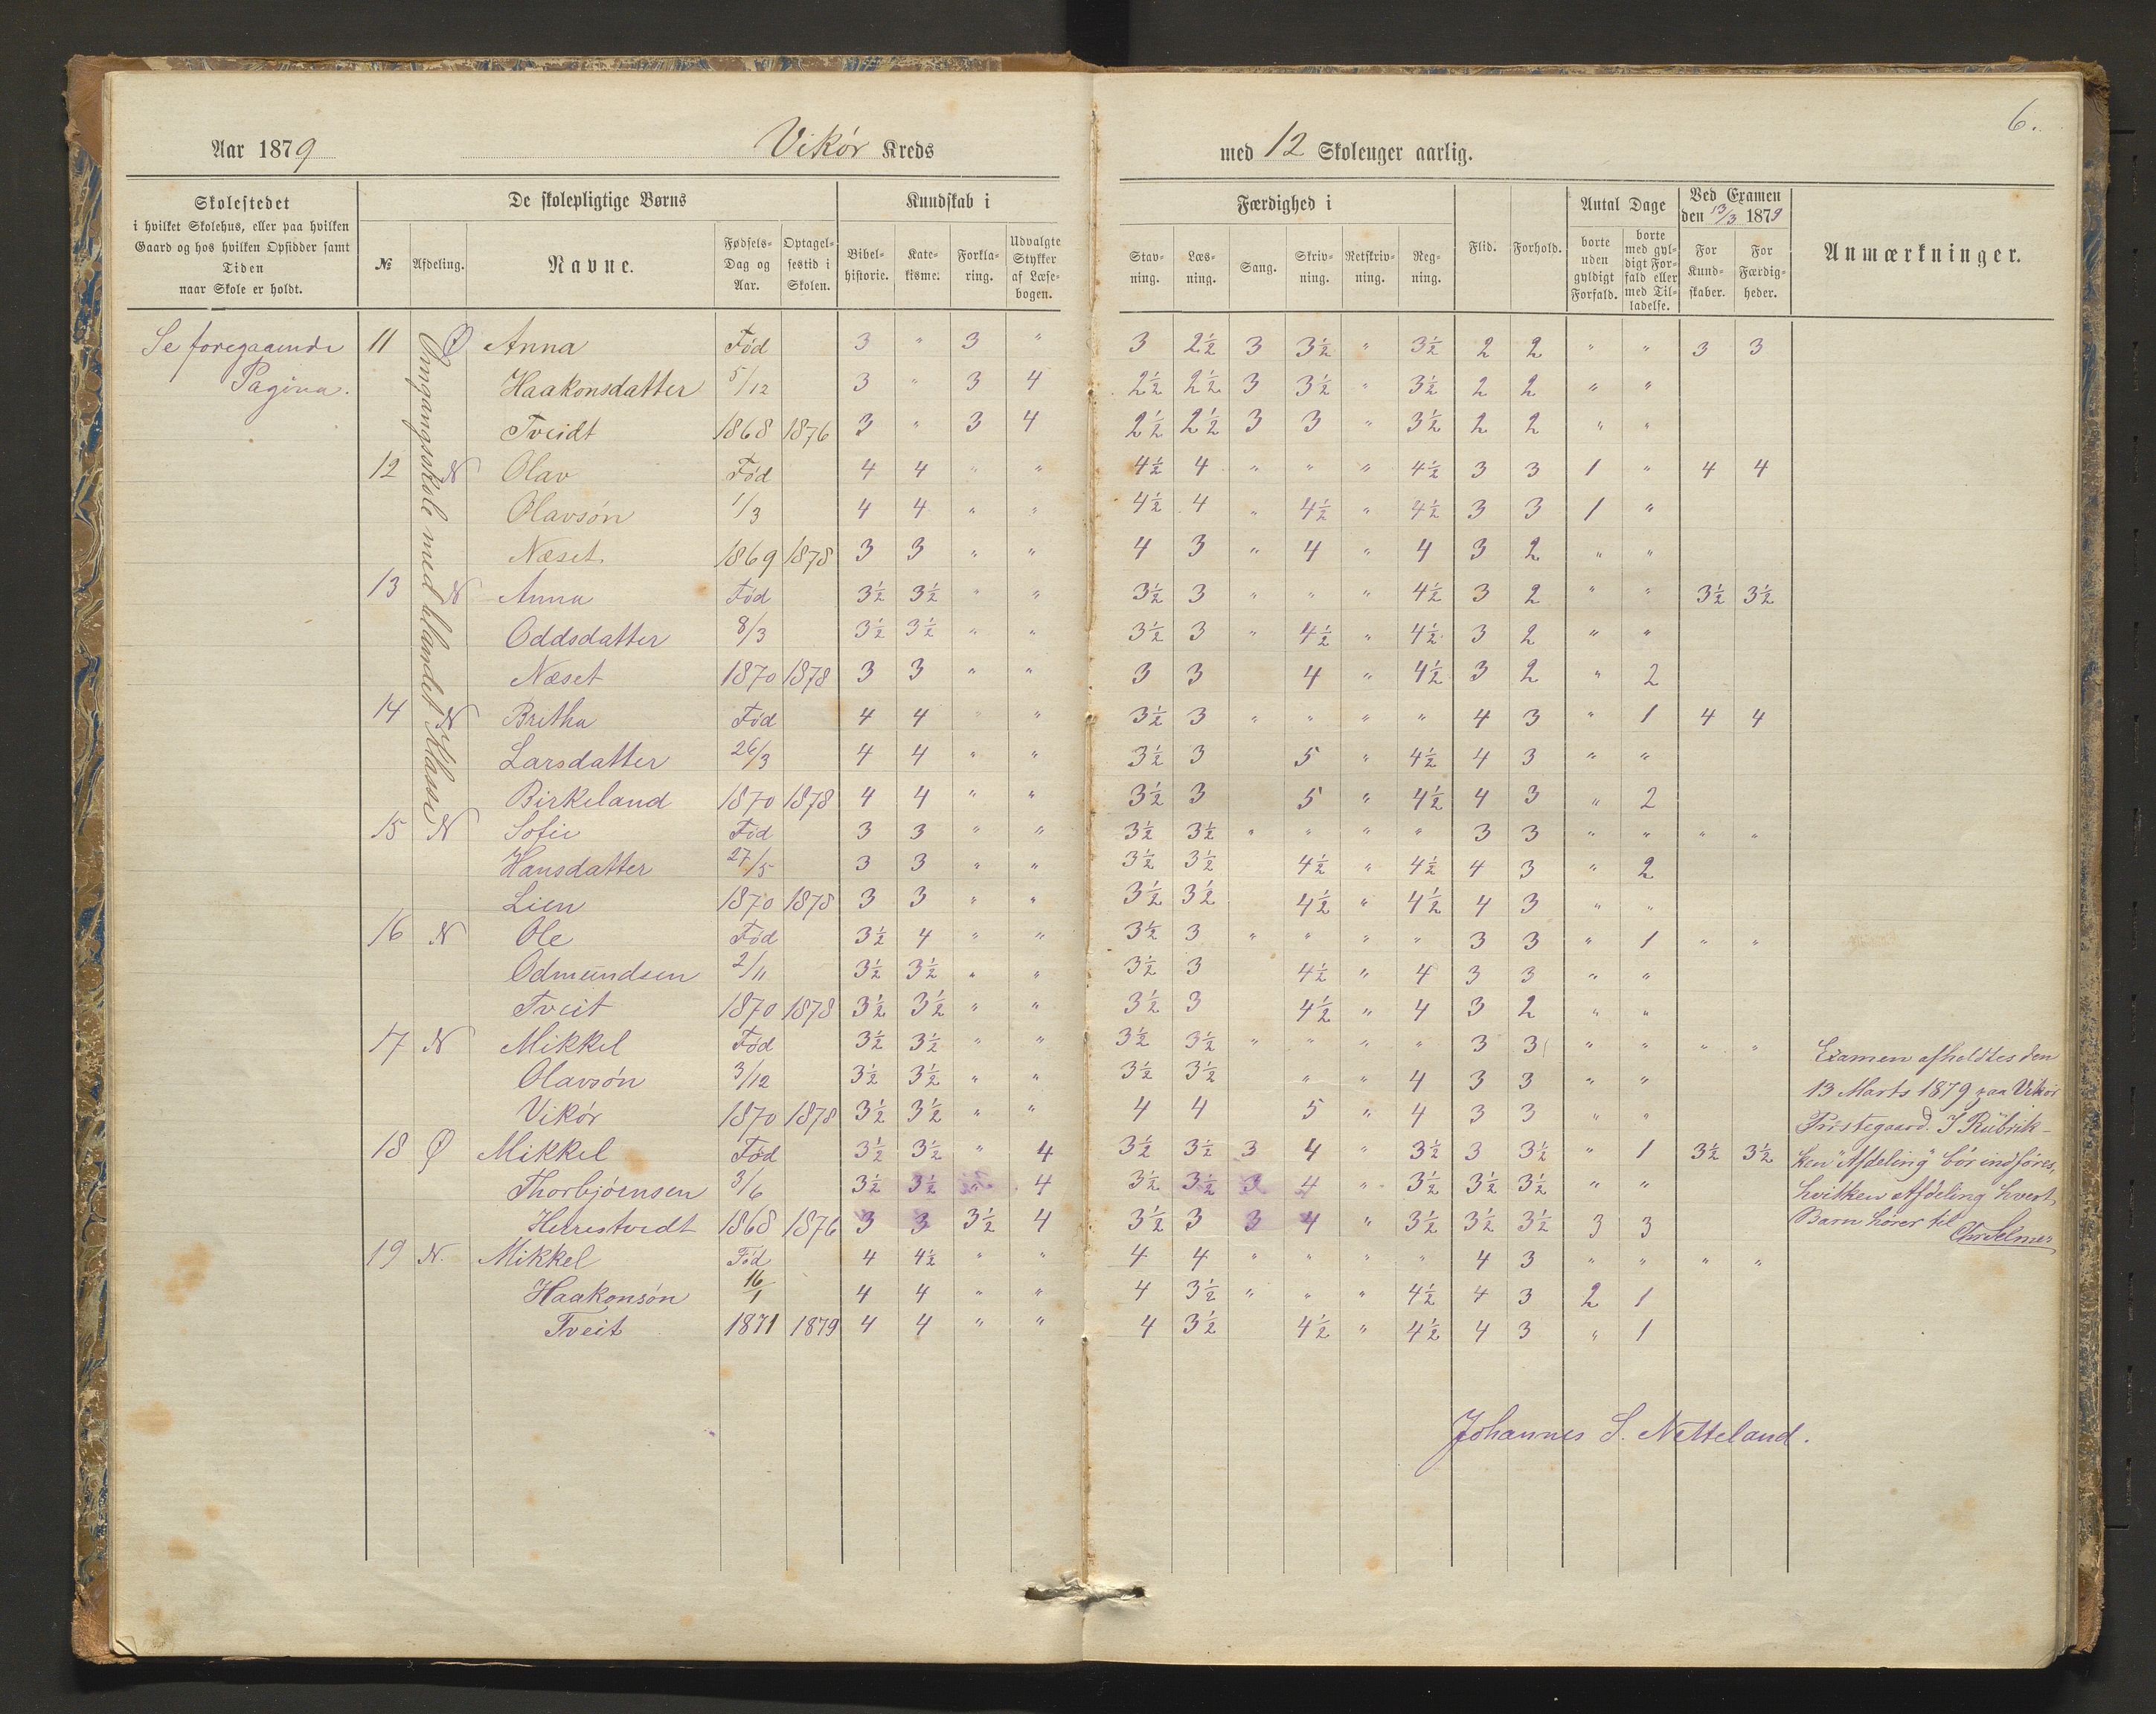 6.
Aar 1879 Vikör Kreds med 12 Skoleuger aarlig.
Skolestedet
i hvilket Skolehus, eller paa hvilken
Gaard og hos hvilken Opsidder samt
Tiden
naar Skole er holdt.
De skolepligtige Børns
№ Afdeling. Navne. Fødsels-Dag og Aar. Optagelsestid i Skolen.
Kundskab i
Bibelhistorie. Katekisme. Forklaring. Udvalgte Stykker af Læsebogen.
Færdighed i
Stavning. Læsning. Sang. Skrivning. Retskrivning. Regning.
Flid. Forhold.
Antal Dage
borte uden gyldigt Forfald. borte med gyldigt Forfald eller med Tilladelse.
Ved Examen
den 13/3 1879
For Kundskaber. For Færdigheder.
Anmærkninger.
Se foregaaende
Pagina.
Omgangsskole med blandet Klasse
11 Ø Anna Fød 3 " 3 " 3 2½ 3 3½ " 3½ 2 2 " " 3 3
Haakonsdatter 5/12 3 " 3 4 2½ 2½ 3 3½ " 3½ 2 2 " "
Tveidt 1868 1876 3 " 3 4 2½ 2½ 3 3 " 3½ 2 2 " "
12 N Olav Fød 4 4 " " 4½ 4 " " " 4½ 3 3 1 " 4 4
Olavsön 1/3 4 4 " " 4½ 4 " 4½ " 4½ 3 3 1 "
Næset. 1869 1878 3 3 " " 4 3 " 4 " 4 3 2 " "
13 N Anna Fød 3½ 3½ " " 3½ 3 " " " 4½ 3 2 " " 3½ 3½
Oddsdatter 8/3 3½ 3½ " " 3½ 3 " 4½ " 4½ 3 2 " "
Næset 1870 1878 3 3 " " 3 3 4 " 4½ 3 2 " 2
14 N Britha Fød 4 4 " " 3½ 3 " " " " 4 3 " 1 4 4
Larsdatter 26/3 4 4 " " 3½ 3 5 " 4½ 4 3 " "
Birkeland 1870 1878 4 4 " " 3½ 3 5 " 4½ 4 3 " 2
15 N Sofie Fød 3 3 " " 3½ 3½ " " " " 3 3 " " " "
Hansdatter 27/5 3 3 " " 3½ 3½ 4½ " 4½ 4 3 " 2
Lien 1870 1878 3 3 " " 3½ 3½ 4½ " 4½ 4 3 " "
16 N Ole Fød 3½ 4 " " 3½ 3 " " " " 3 3 " 1 " "
Odmundsen 2/11 3½ 3½ " " 3½ 3 4½ " 4 3 3 " "
Tveit 1870 1878 3½ 3½ " " 3½ 3 4½ " 4 3 2 " "
17 N Mikkel Fød 3½ 3½ " " 3½ 3½ " " " " 3 3 " " " "
Olavsön 3/12 3½ 3½ " " 3½ 3½ " " 4 3 3 " "
Vikör 1870 1878 3½ 3½ " " 4 4 5 " 4 3 3 " "
18 Ø Mikkel Fød 3½ 3½ " 4 3½ 3½ 3 4 " 3½ 3 3½ " 1 3½ 3½
Thorbjöensen 3/6 3½ 3½ " 4 3½ 3½ 3 4 " 3½ 3½ 3½ " "
1868 1876 3 3 3½ 4 3½ 3 3 4 " 3½ 3½ 3½ 3 3
19 N. Mikkel Fød 4 4½ " " 4 4 " " " " 4 3 " " " "
Haakonsön 16/1 4 4 " " 4 3½ " " " 4½ 4 3 2 1
Tveit 1871 1879 4 4 " " 4 3½ 4½ " 4½ 4 3 " 1
Examen afholdtes den
13 Marts 1879 paa Vikör
Præstegaard. I Rubrik-
ken "Afdeling" bör indföres,
hvilken Afdeling hvert
Barn hörer til
Chr Selmer
Johannes S. Netteland.